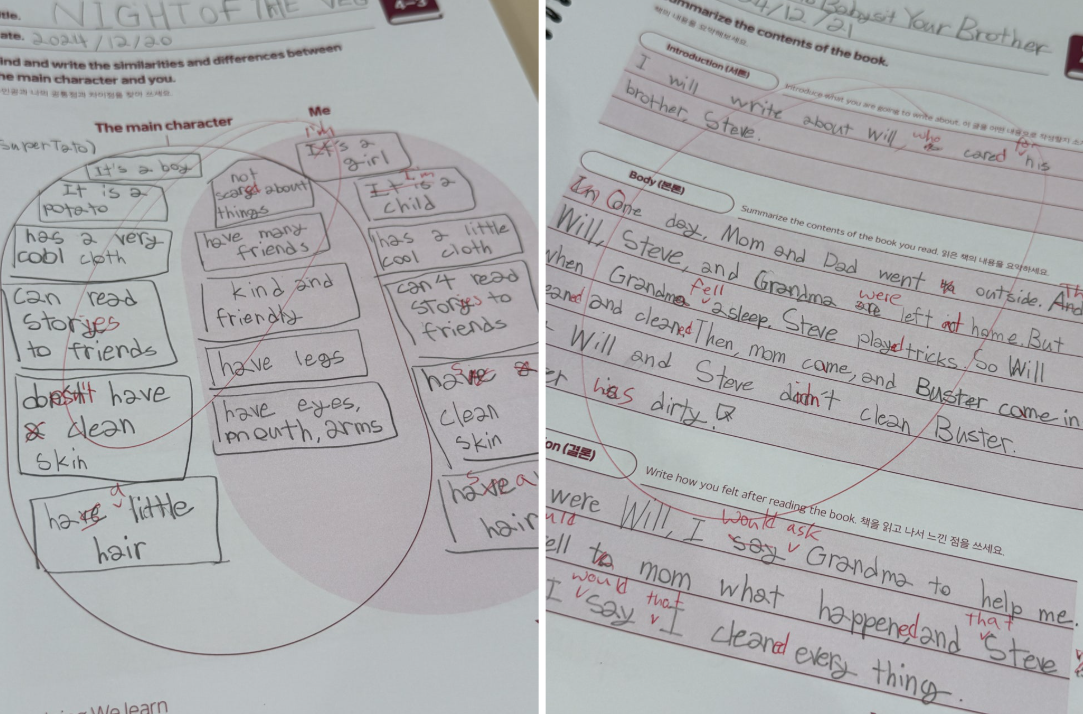 NIGHT OF THE VEG
4-3
ate. 2024/12/20
ind and write the similarities and differences between
he main character and you.
The main character
Me
(SuperTato)
It's a boy
It is a
potato
has a very
cool cloth
can read
storyes
to friends
doesn't have
a clean
skin
have a little
hair
not
scared about
things
have many
friends
kind and
friendly
have legs
have eyes,
mouth, arms
I'm
It's a
girl
I'm
It is a
child
has a little
cool cloth
can't read
storyes to
friends
has a
clean
skin
has a
hair
We learn
Babysit Your Brother
4/12/21
mmarize the contents of the book.
책의 내용을 요약해보세요.
Introduction (서론)
Introduce what you are going to write about.
I will write about Will, who cared for his
brother, Steve.
Body (본론)
Summarize the contents of the book you read. 읽은 책의 내용을 요약하세요.
In One day, Mom and Dad went outside. And
Will, Steve, and Grandma were left at home. But
when Grandma fell asleep. Steve played tricks. So Will
eaned and cleaned Then, mom came, and Buster came in
Will and Steve didn't clean Buster.
er his dirty.
on (결론)
Write how you felt after reading the book. 책을 읽고 나서 느낀 점을 쓰세요.
were Will, I would ask say Grandma to help me.
ell to mom what happened, and that Steve
I would say that I cleaned every thing.